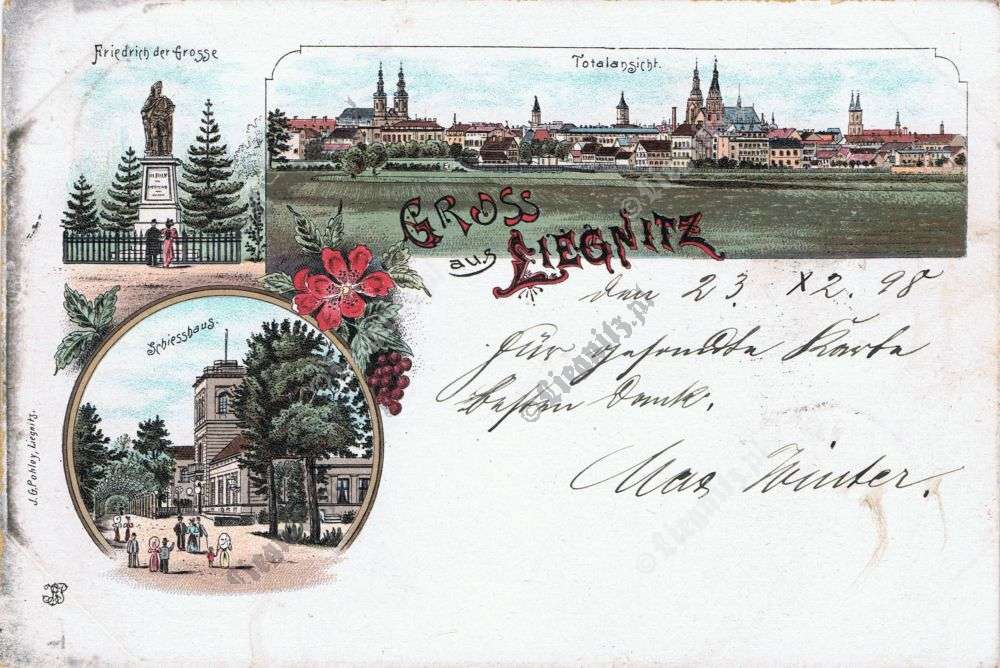 Friedrich der Grosse
Totalansicht.
GROSS
aus
LIEGNITZ
den 23. X2. 98
Für gesendte Karte
besten Dank.
Max Winter.
Schiesshaus.
J. G. Pohley, Liegnitz.
© liegnitz.pl